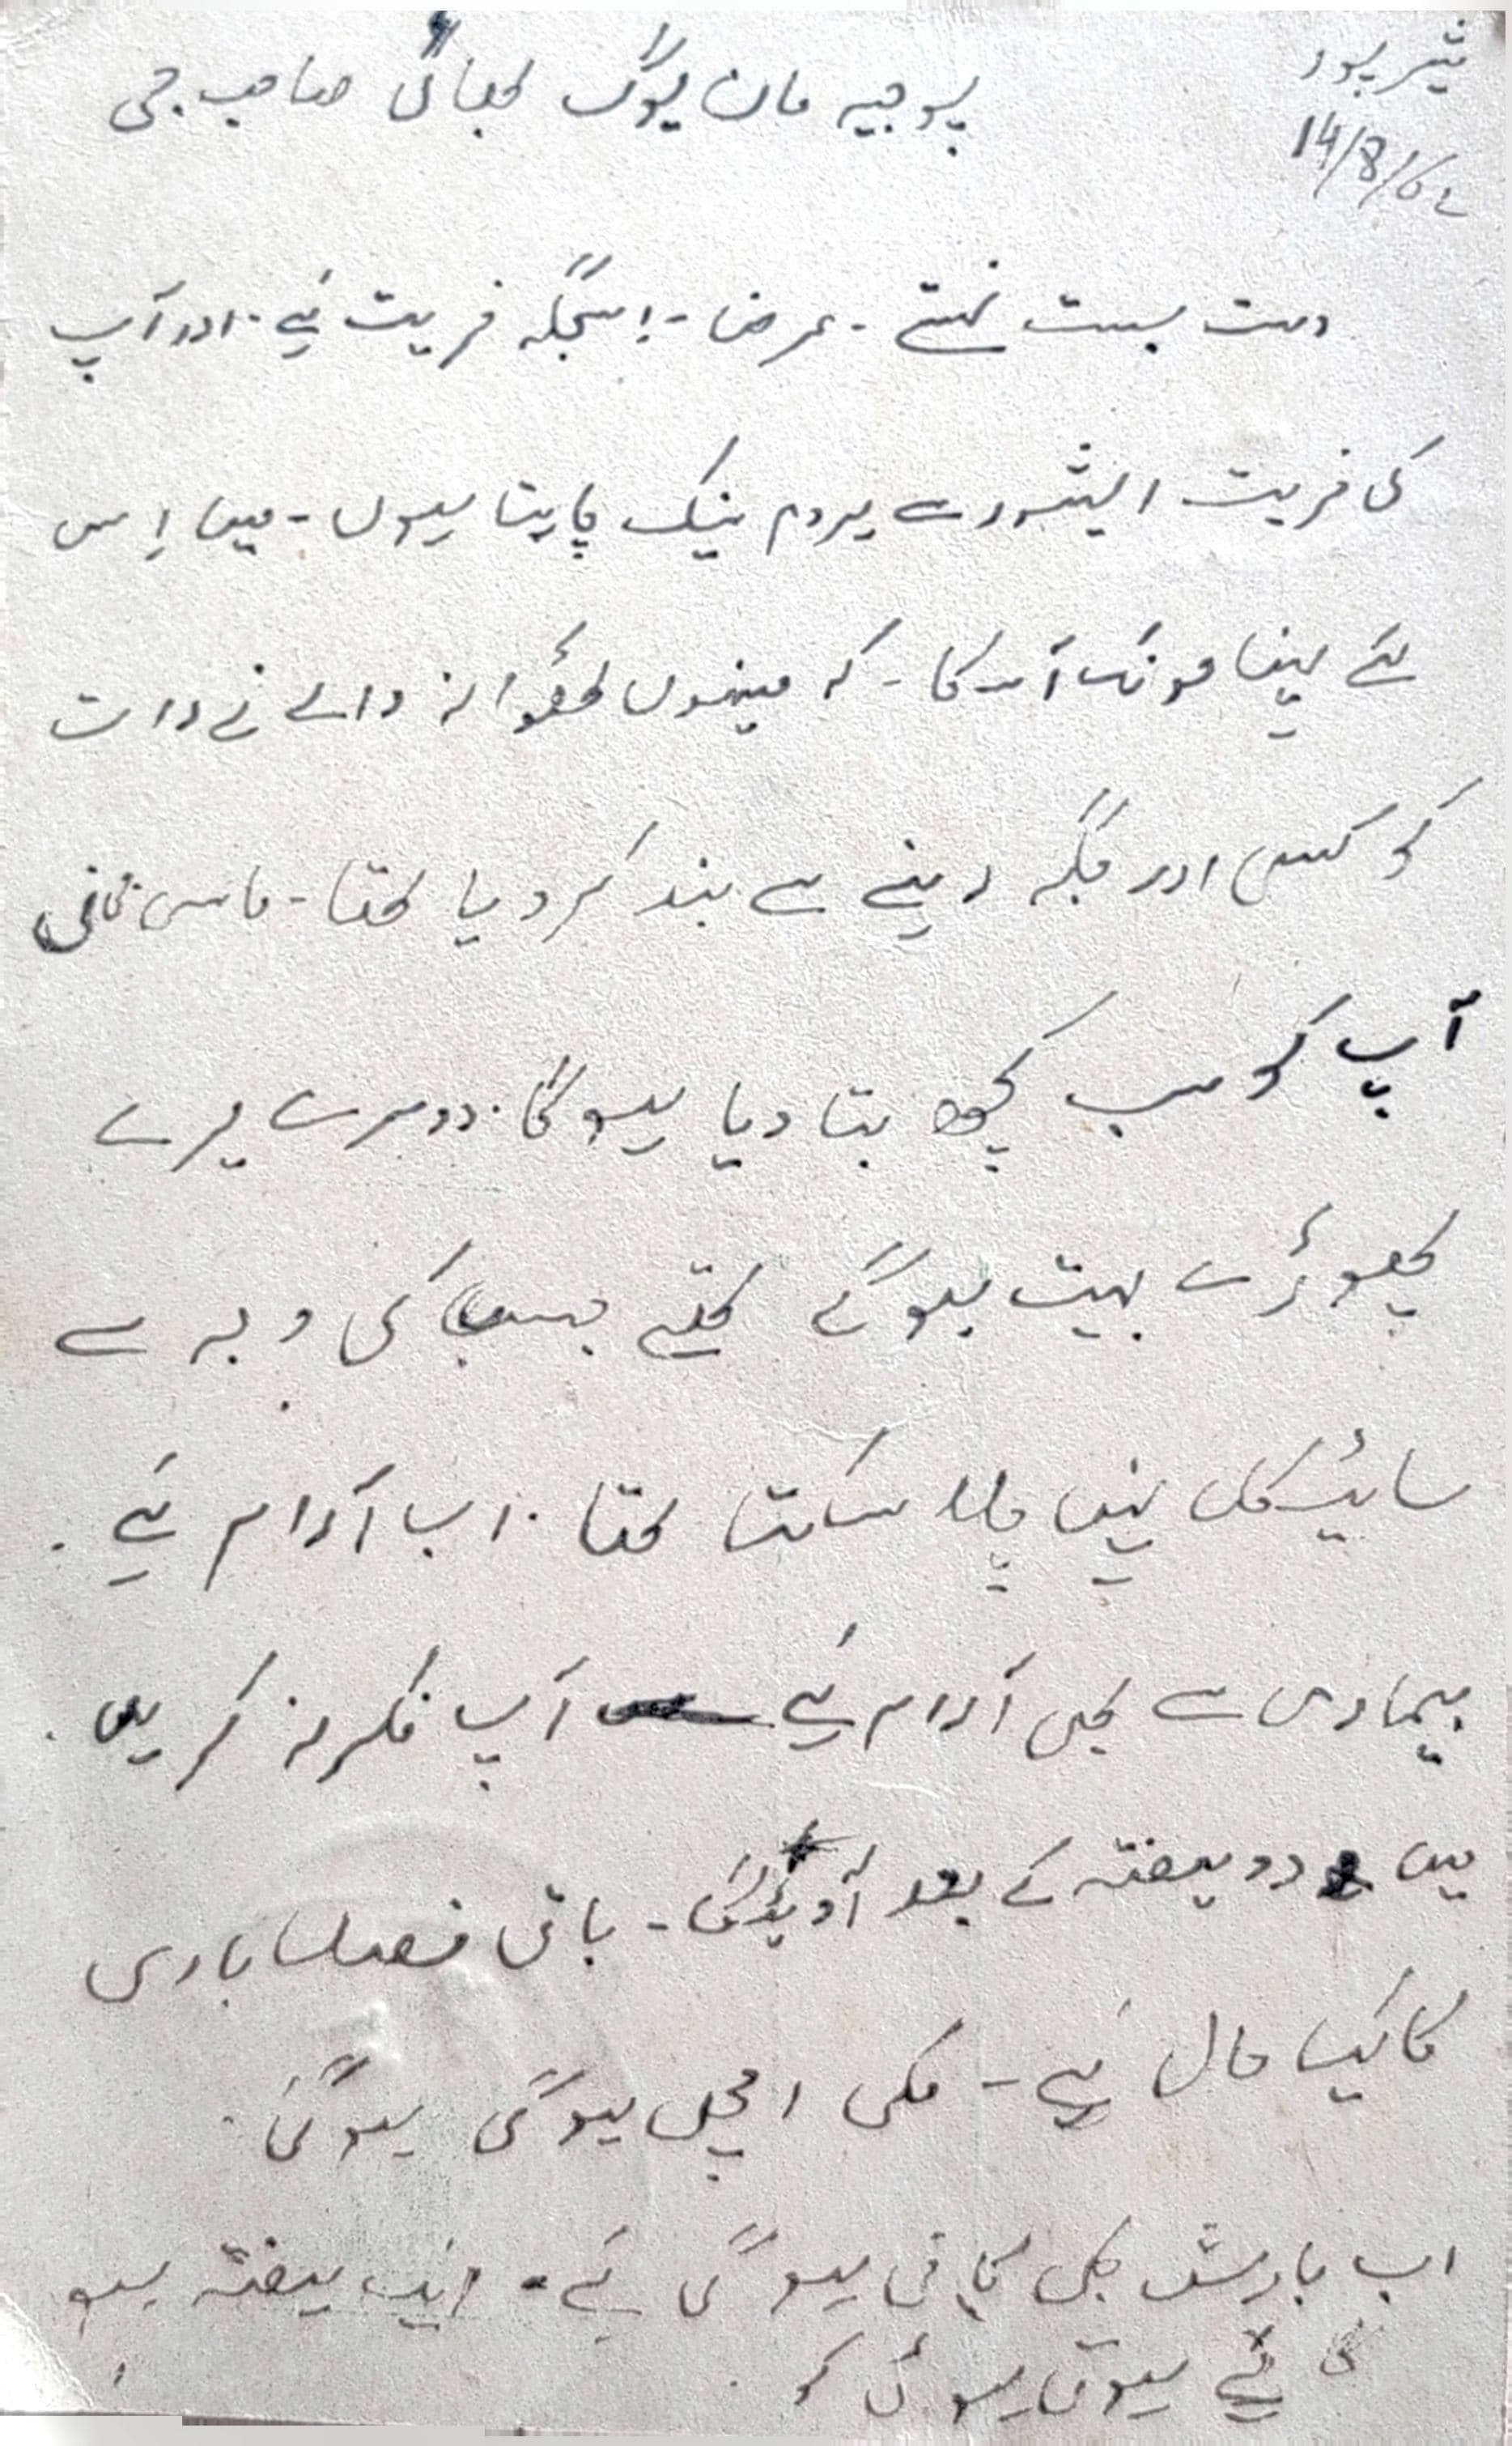 شیر پور
14/8/62
پوجیہ مان یوگ بھائی صاحب جی
دست بست نمستے - عرض - اسجگہ خریت ہے . اور آپ
کی خریت ایشور سے ہردم نیک چاہتا ہوں - میں اِس
لئے نہیں آ سکا - کہ مینہوں والے نے رات
کو کسی اور جگہ دینے سے بند کر دیا تھا - ماسی
آپ کو سب کچھ بتا دیا ہوگا . دوسرے میرے
پھوڑے بہت ہوگے تھے جس کی وجہ سے
سائیکل نہیں چلا سکتا تھا . اب آرام ہے .
بیماری سے بھی آرام ہے آپ فکر نہ کریں .
میں دو ہفتہ کے بعد آویگا - باقی فصل باری
کا کیا حال ہے - مکی اچھی ہوگی ہوگی .
اب بارش بھی کافی ہوگی ہے - ایک ہفتہ ہو
گی ہے ہوتی ہوئی کو .